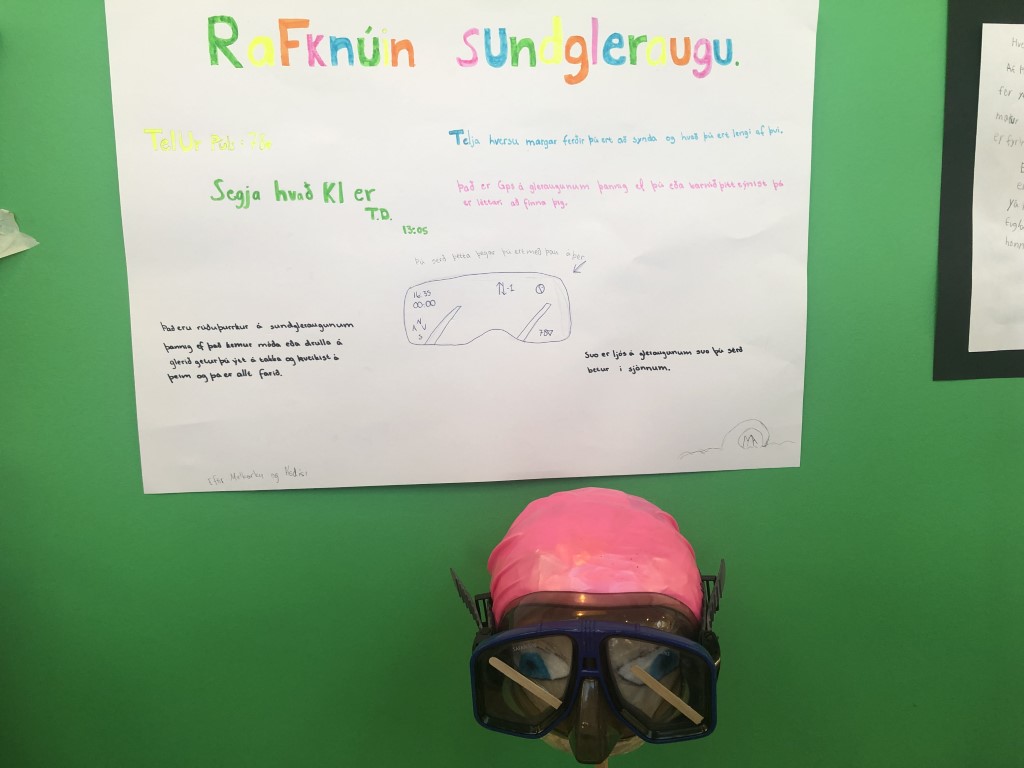 RaFKnúin sundgleraugu.
Telur Púls: 78
Telja hversu margar ferðir þú ert að synda og hvað þú ert lengi af því.
Segja hvað Kl er
T.D.
13:05
Það er Gps á gleraugunum þannig ef þú eða
þú
er léttara að finna þig.
Þú serð þetta þegar þú ert með þau á þer
16:35
00:00
⇅-1
N
A V
S
78
Það eru rúðuþurrkur á sundgleraugunum
þannig ef það kemur móða eða drulla á
glerið getur þú ýtt á takka og kveikist á
þeim og þá er allt farið.
Svo er ljós á gleraugunum svo þú serð
betur i sjónnum.
Eftir og